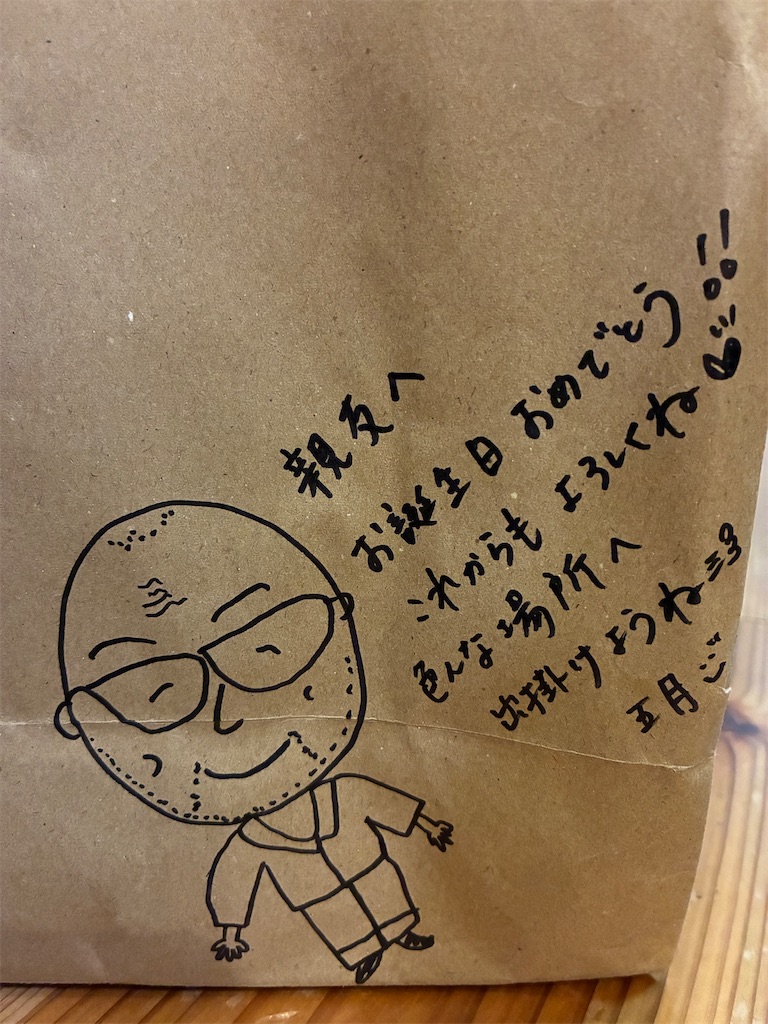 親友へ
お誕生日おめでとう!!
これからもよろしくね
色んな場所へ
出掛けようね
五月